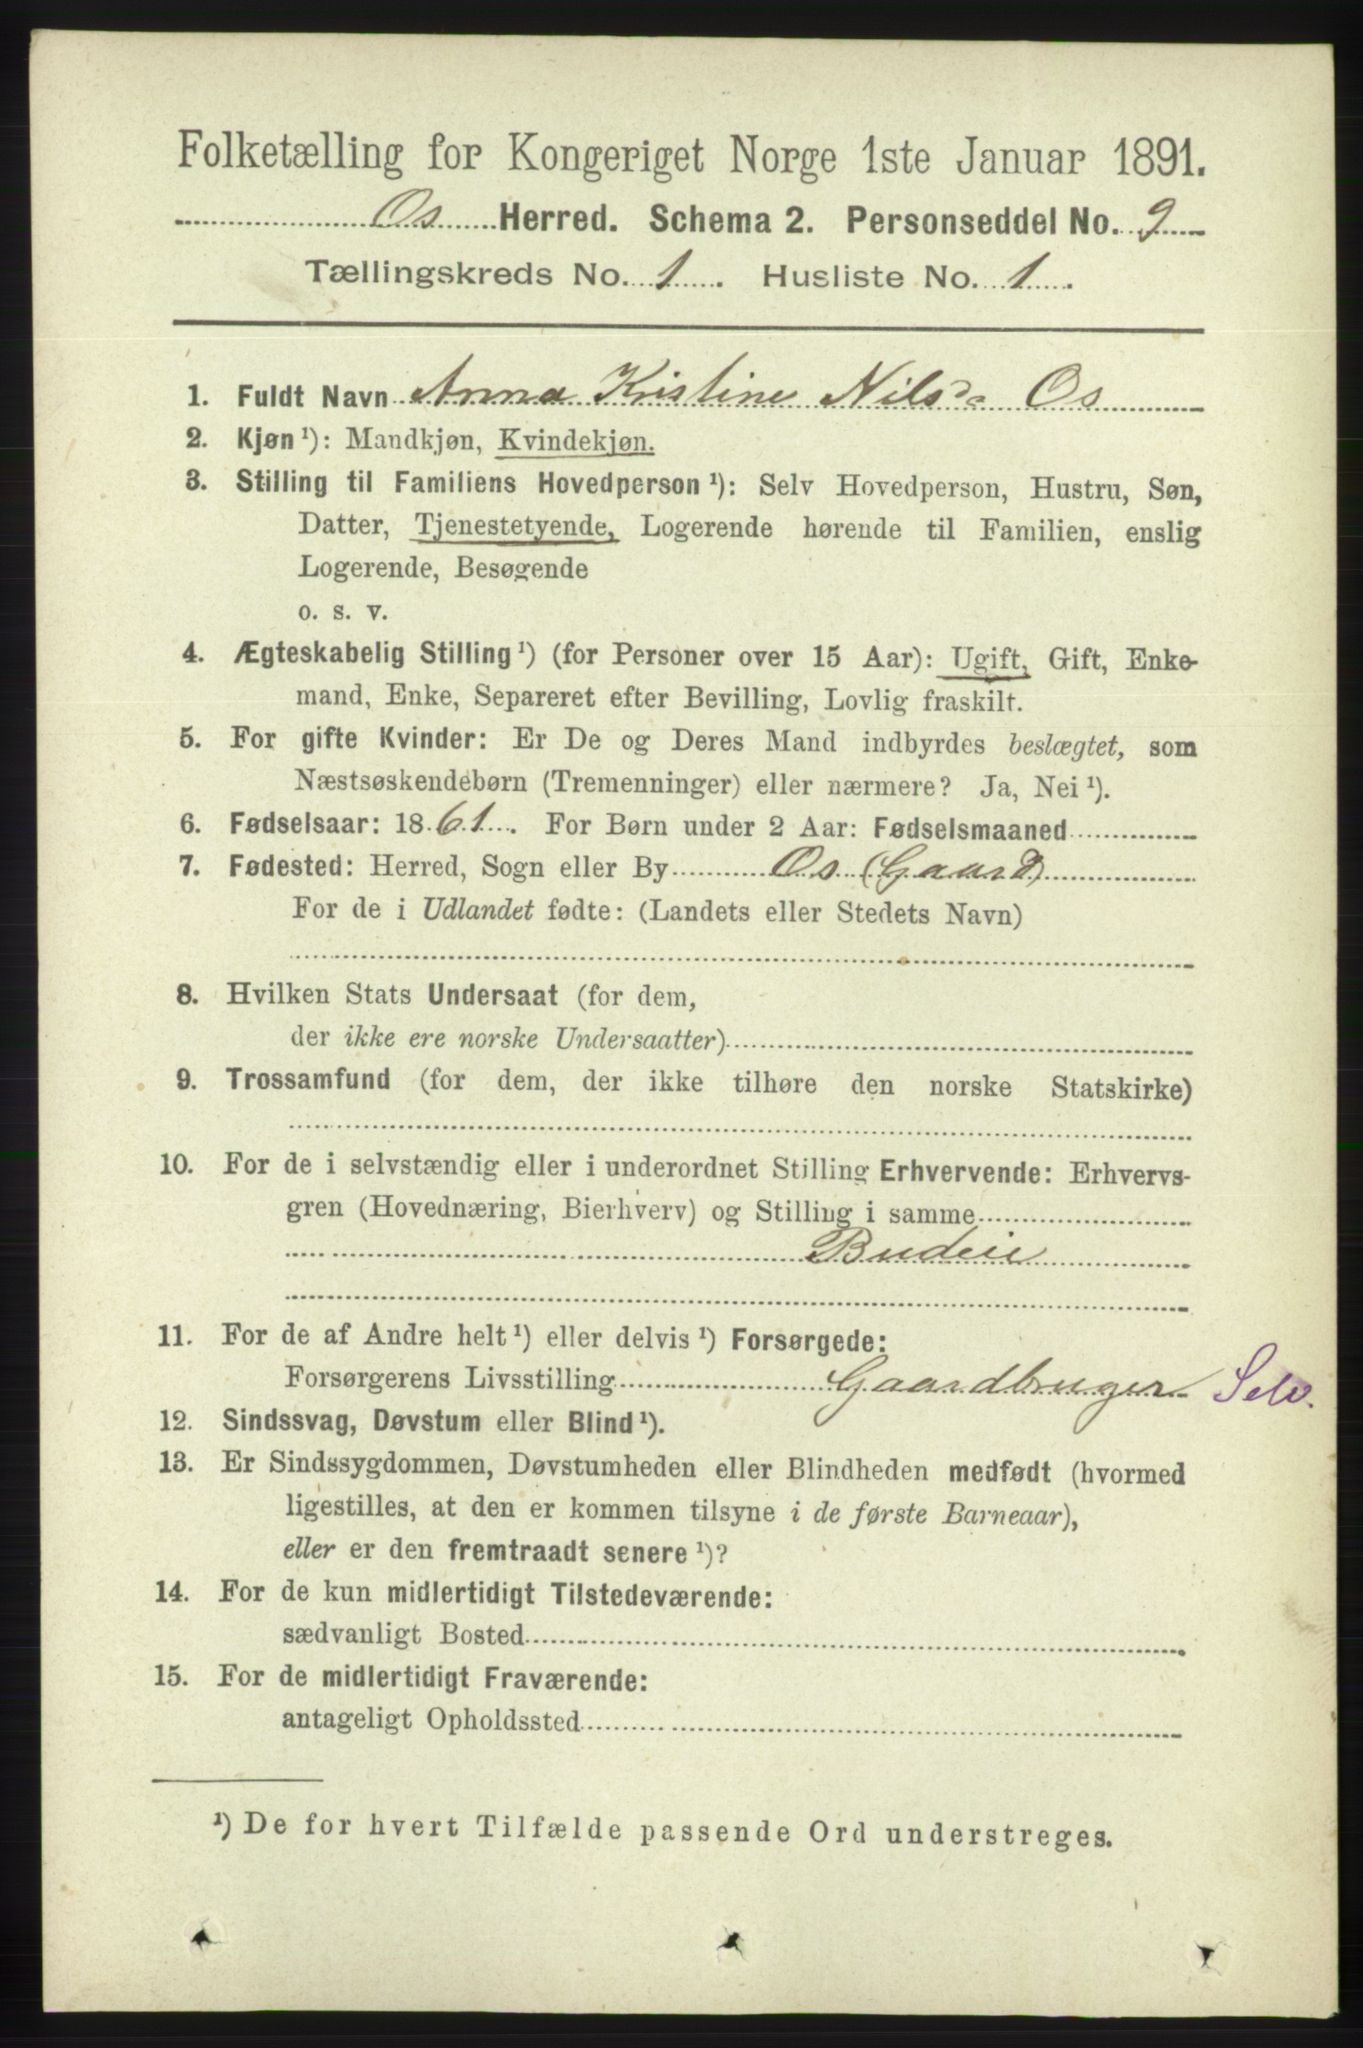 Folketælling for Kongeriget Norge 1ste Januar 1891.
Os Herred. Schema 2. Personseddel No. 9
Tællingskreds No. 1. Husliste No. 1.
1. Fuldt Navn Anna Kristine Nilsd. Os
2. Kjøn ¹): Mandkjøn, Kvindekjøn.
3. Stilling til Familiens Hovedperson ¹): Selv Hovedperson, Hustru, Søn,
Datter, Tjenestetyende, Logerende hørende til Familien, enslig
Logerende, Besøgende
o. s. v.
4. Ægteskabelig Stilling ¹) (for Personer over 15 Aar): Ugift, Gift, Enke-
mand, Enke, Separeret efter Bevilling, Lovlig fraskilt.
5. For gifte Kvinder: Er De og Deres Mand indbyrdes beslægtet, som
Næstsøskendebørn (Tremenninger) eller nærmere? Ja, Nei ¹).
6. Fødselsaar: 1861. For Børn under 2 Aar: Fødselsmaaned
7. Fødested: Herred, Sogn eller By Os (Gaard)
For de i Udlandet fødte: (Landets eller Stedets Navn)
8. Hvilken Stats Undersaat (for dem,
der ikke ere norske Undersaatter)
9. Trossamfund (for dem, der ikke tilhøre den norske Statskirke)
10. For de i selvstændig eller i underordnet Stilling Erhvervende: Erhvervs-
gren (Hovednæring, Bierhverv) og Stilling i samme
Budeie
11. For de af Andre helt ¹) eller delvis ¹) Forsørgede:
Forsørgerens Livsstilling Gaardbruger Selv.
12. Sindssvag, Døvstum eller Blind ¹).
13. Er Sindssygdommen, Døvstumheden eller Blindheden medfødt (hvormed
ligestilles, at den er kommen tilsyne i de første Barneaar),
eller er den fremtraadt senere ¹)?
14. For de kun midlertidigt Tilstedeværende:
sædvanligt Bosted
15. For de midlertidigt Fraværende:
antageligt Opholdssted
¹) De for hvert Tilfælde passende Ord understreges.